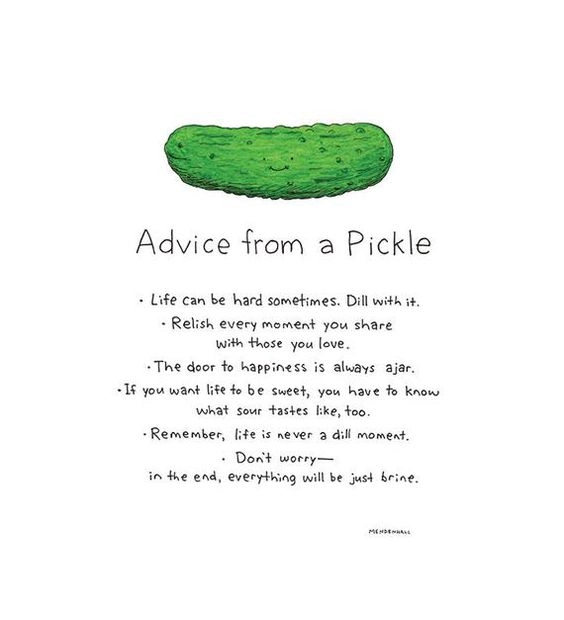 Advice from a Pickle
· Life can be hard sometimes. Dill with it.
· Relish every moment you share
with those you love.
· The door to happiness is always ajar.
· If you want life to be sweet, you have to know
what sour tastes like, too.
· Remember, life is never a dill moment.
· Don't worry—
in the end, everything will be just brine.
MENDENHALL